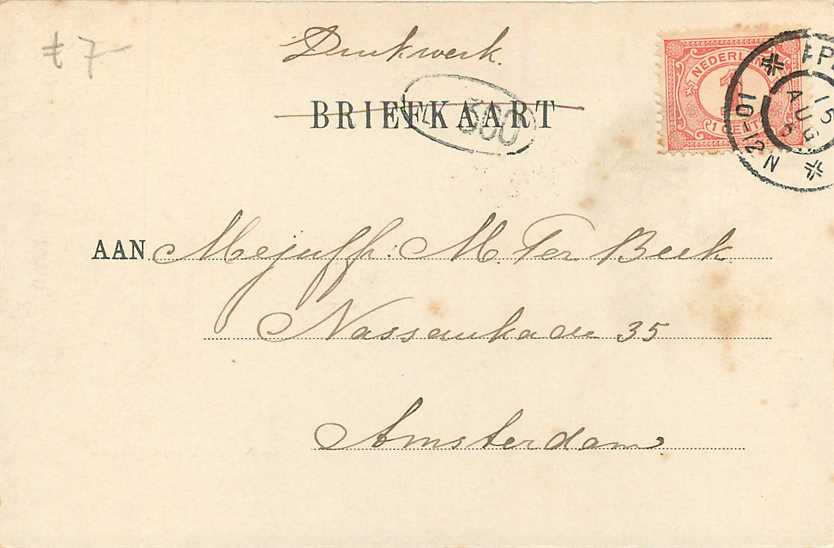 £ 7-
Drukwerk.
BRIEFKAART
560
NEDERLAND
1
1 CENT
15
AUG
10-12 N
AAN Mejuff: M. Ter Beek.
Nassaukade 35
Amsterdam